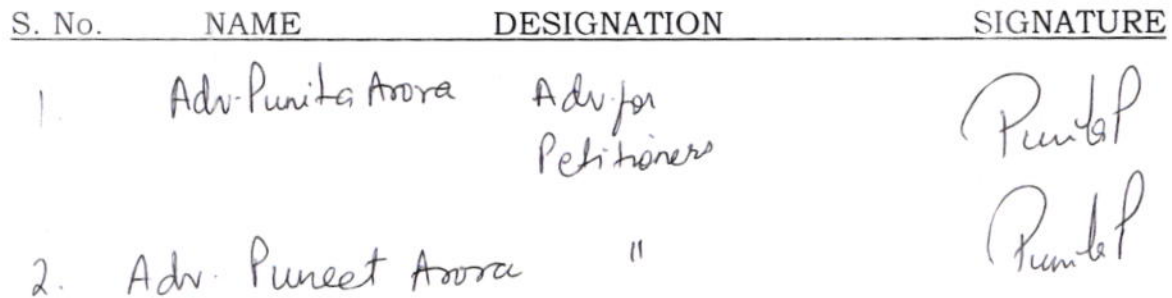 S. No. NAME DESIGNATION SIGNATURE
1. Adv. Punita Arora Adv. for Petitioners Punita P
2. Adv. Puneet Arora " Punita P